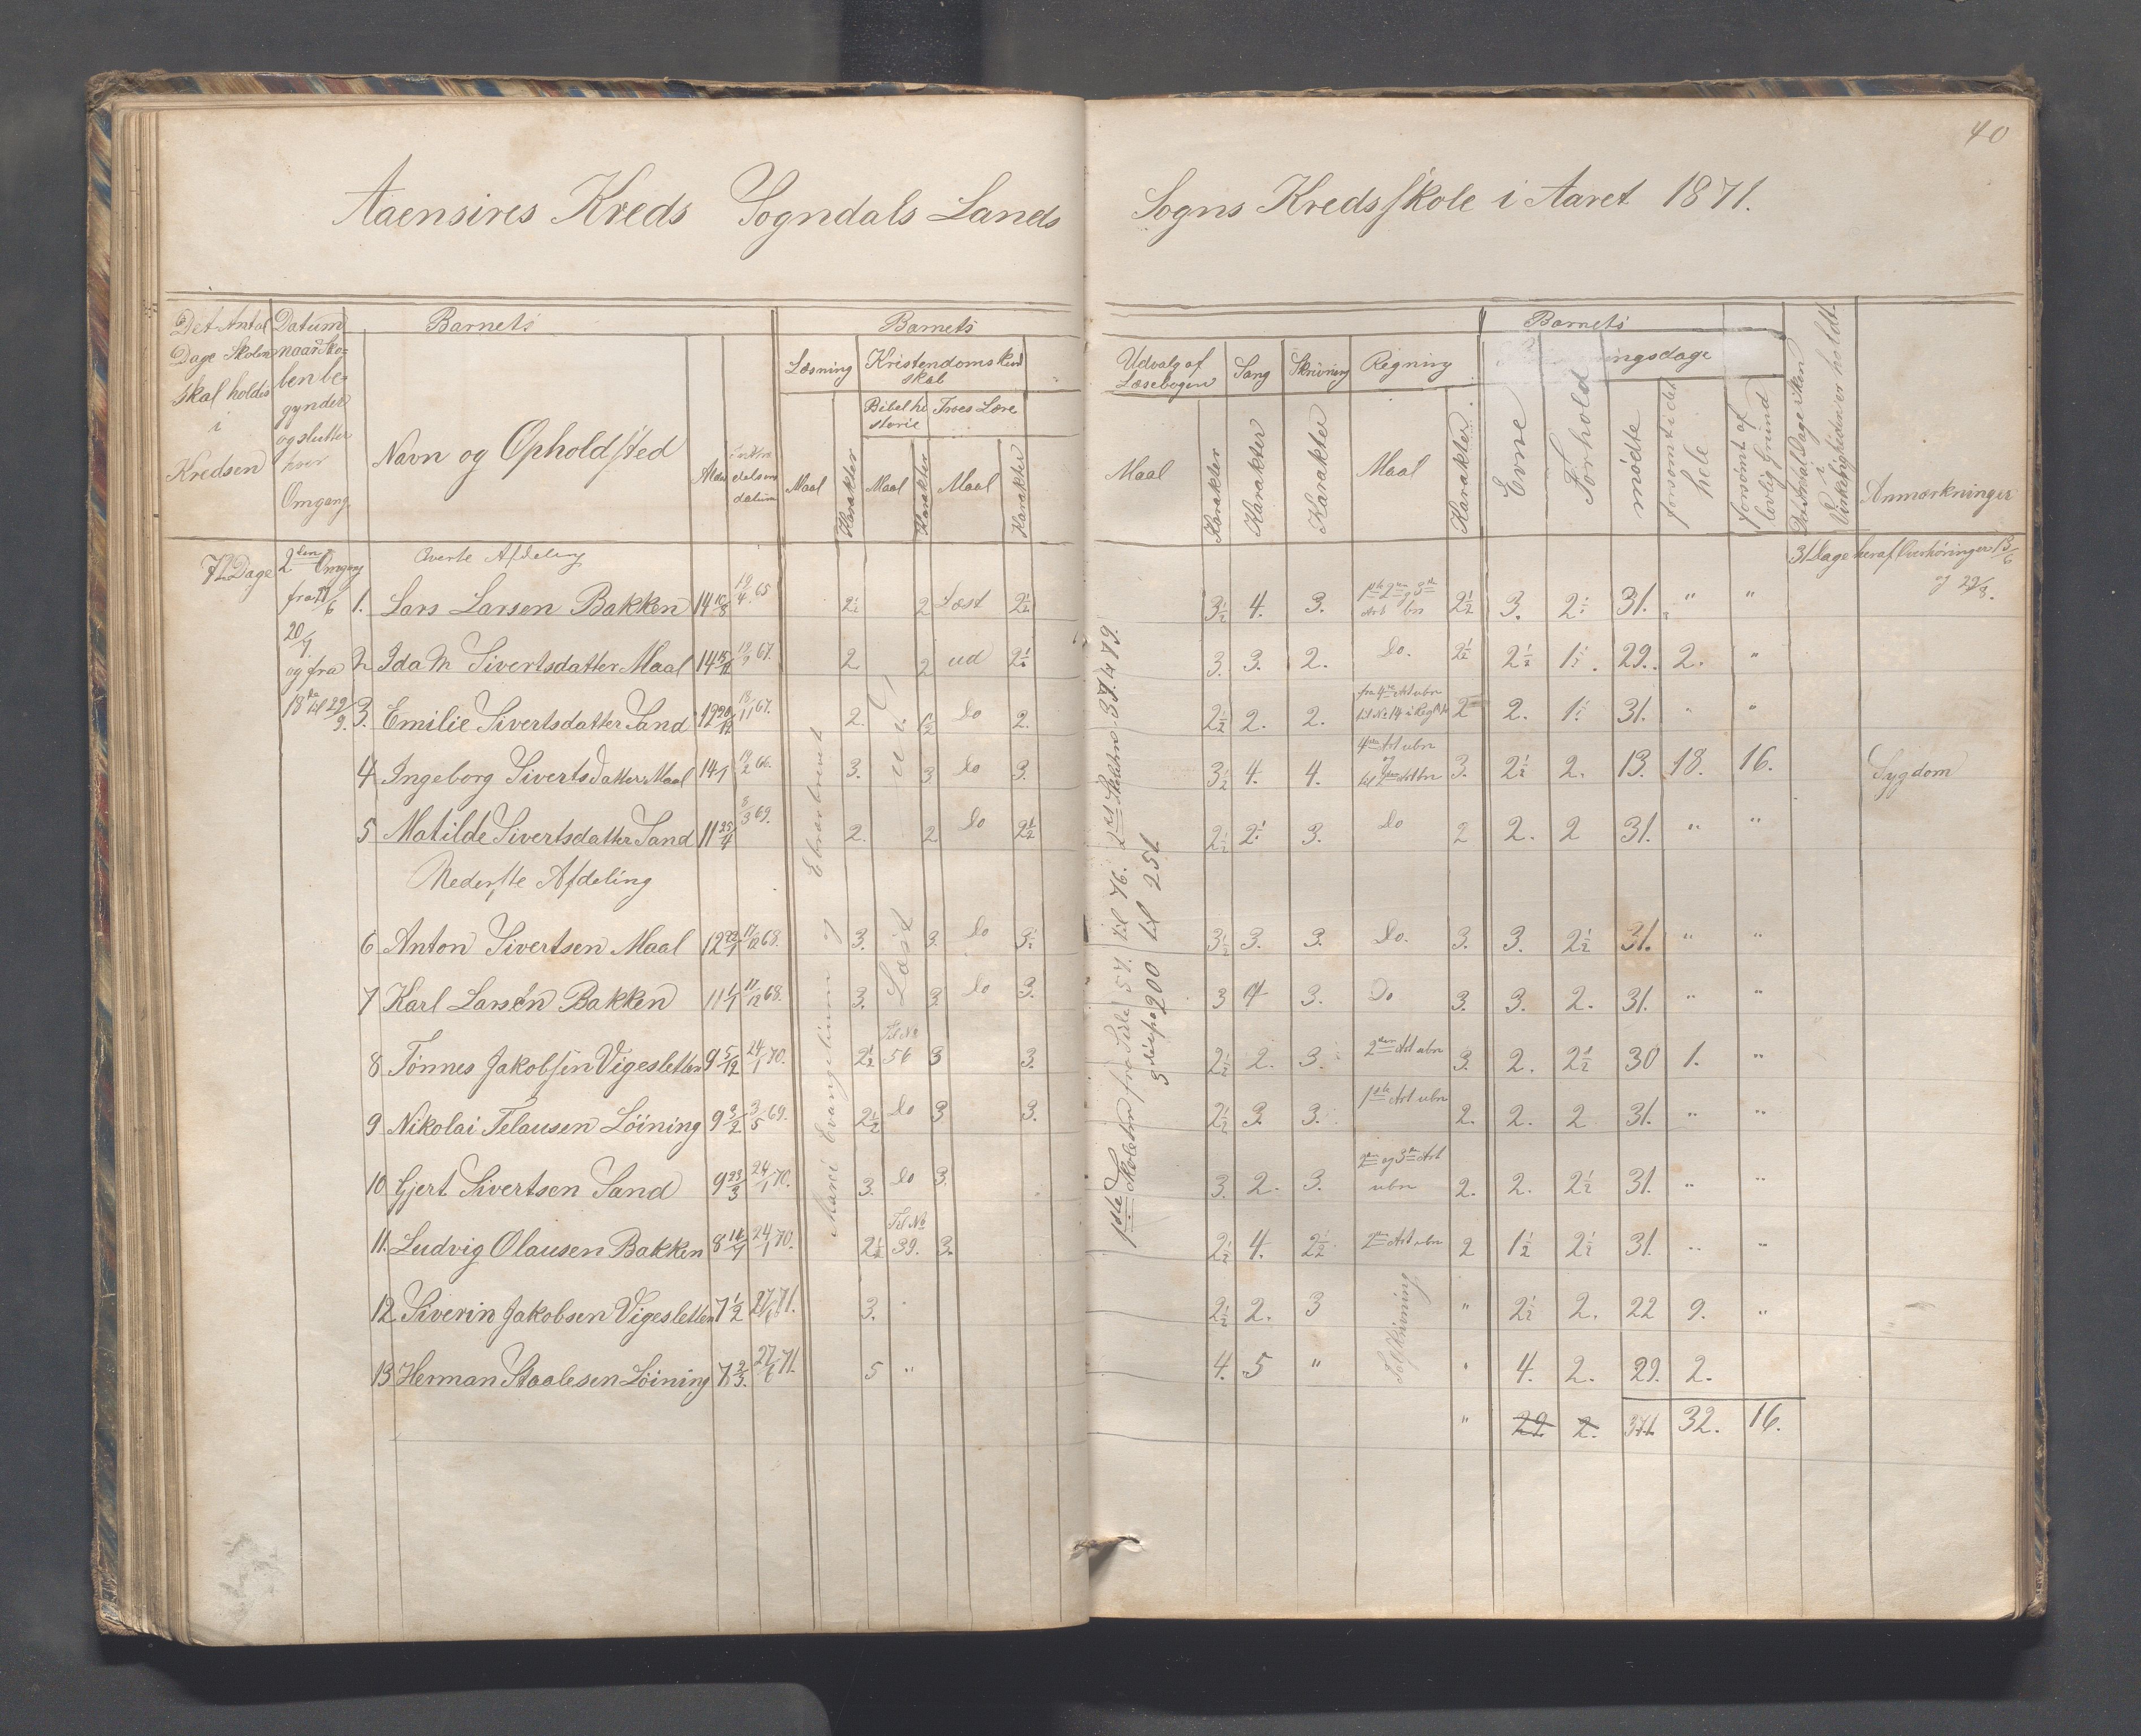 40
Aaensires Kreds Sogndals Lands Sogns Kredsskole i Aaret 1871.
Det Antal Dage Skolen skal holdes i Kredsen
Datum naar Skolen begynder og slutter hver Omgang
Barnets
Navn og Opholdssted
Alder
datum
Barnets
Læsning
Maal
Karakter
Kristendomskundskab
Bibelhistorie
Maal
Karakter
Troes Lære
Maal
Karakter
Udvalg af Læsebogen
Maal
Karakter
Sang
Karakter
Skrivning
Karakter
Regning
Maal
Karakter
Barnets
Evne
Forhold
mødte
forsømt i det hele
forsømt af lovlig Grund
Det Antal Dage Skolen i Virkeligheden er holdt
Anmærkninger
72 Dage 2den Omgang Øverste Afdeling 31 Dage heraf Overhøringer 13/6 og 29/8.
1. Lars Larsen Bakken 14 10/8 19/4 65 2½ 2 Læst 2½ 3½ 4. 3. 2½ 3. 2½ 31. " "
20/7.
og fra 2 Ida M Sivertsdatter Maal 14 67. 2. 2 ud 2½ 3. 3. 2. Do. 2½ 2½ 1½. 29. 2. "
18de til 29/9. 3. Emilie Sivertsdatter Sand 12 67. 2. 1½ Do 2. 2½ 2. 2. 2 2. 1½ 31. " "
4 Ingeborg Sivertsdatter Maal 14 1/1 66. 3. 3. Do 3. 3½ 4. 4. 3. 2½ 2. 13. 18. 16. Sygdom
5 Matilde Sivertsdatter Sand 11 25/4 8/3 69. 2. 2 Do 2½ 2½ 2½ 3. Do 2 2. 2 31. " "
Nederste Afdeling
6 Anton Sivertsen Maal 12 68. 3. 3. Do 3½ 3½ 3. 3. Do. 3. 3. 2½ 31. " "
7 Karl Larsen Bakken 11 1/1 11/12 68. 3. 3 Do 3. 3 4 3. Do 3. 3. 2. 31. " "
8 Tønnes Jakobsen Vigesletten 9 5/12 24/1 70. 2½ Til No 56 3 3. 2½ 2. 3. 2den Art ubn 3. 2. 2½ 30 1. "
9 Nikolai Telausen Löining 9 3/2 3/5 69. 2½ Do 3 3. 2½ 3 3. 1ste Art ubn 2. 2. 2 31. " "
10 Gjert Sivertsen Sand 9 23/3 24/1 70. 3. Do 3. 3. 2. 3. 2den og 3die Art ubn 2. 2. 2½ 31. " "
11. Ludvig Olausen Bakken 8 24/1 70. 2½ Til No 39. 3. 2½ 4. 2½ 2den Art ubn 2 1½ 2½ 31. " "
12 Siverin Jakobsen Vigesletten 7 1/2 27/1 71. 3. 2½ 2. 3 " 2½ 2. 22 9. "
13 Herman Staalesen Löining 7 2/3. 27/1 71. 5 " 4. 5 " 4. 2. 29. 2.
" 22 2. 371. 32. 16.
Marci Evangelium og Ebræerbrevet
Læst ud
1ste Skoletrin fra Side 57. til 76. 2det Skoletrin
200 til 251.
Talskrivning